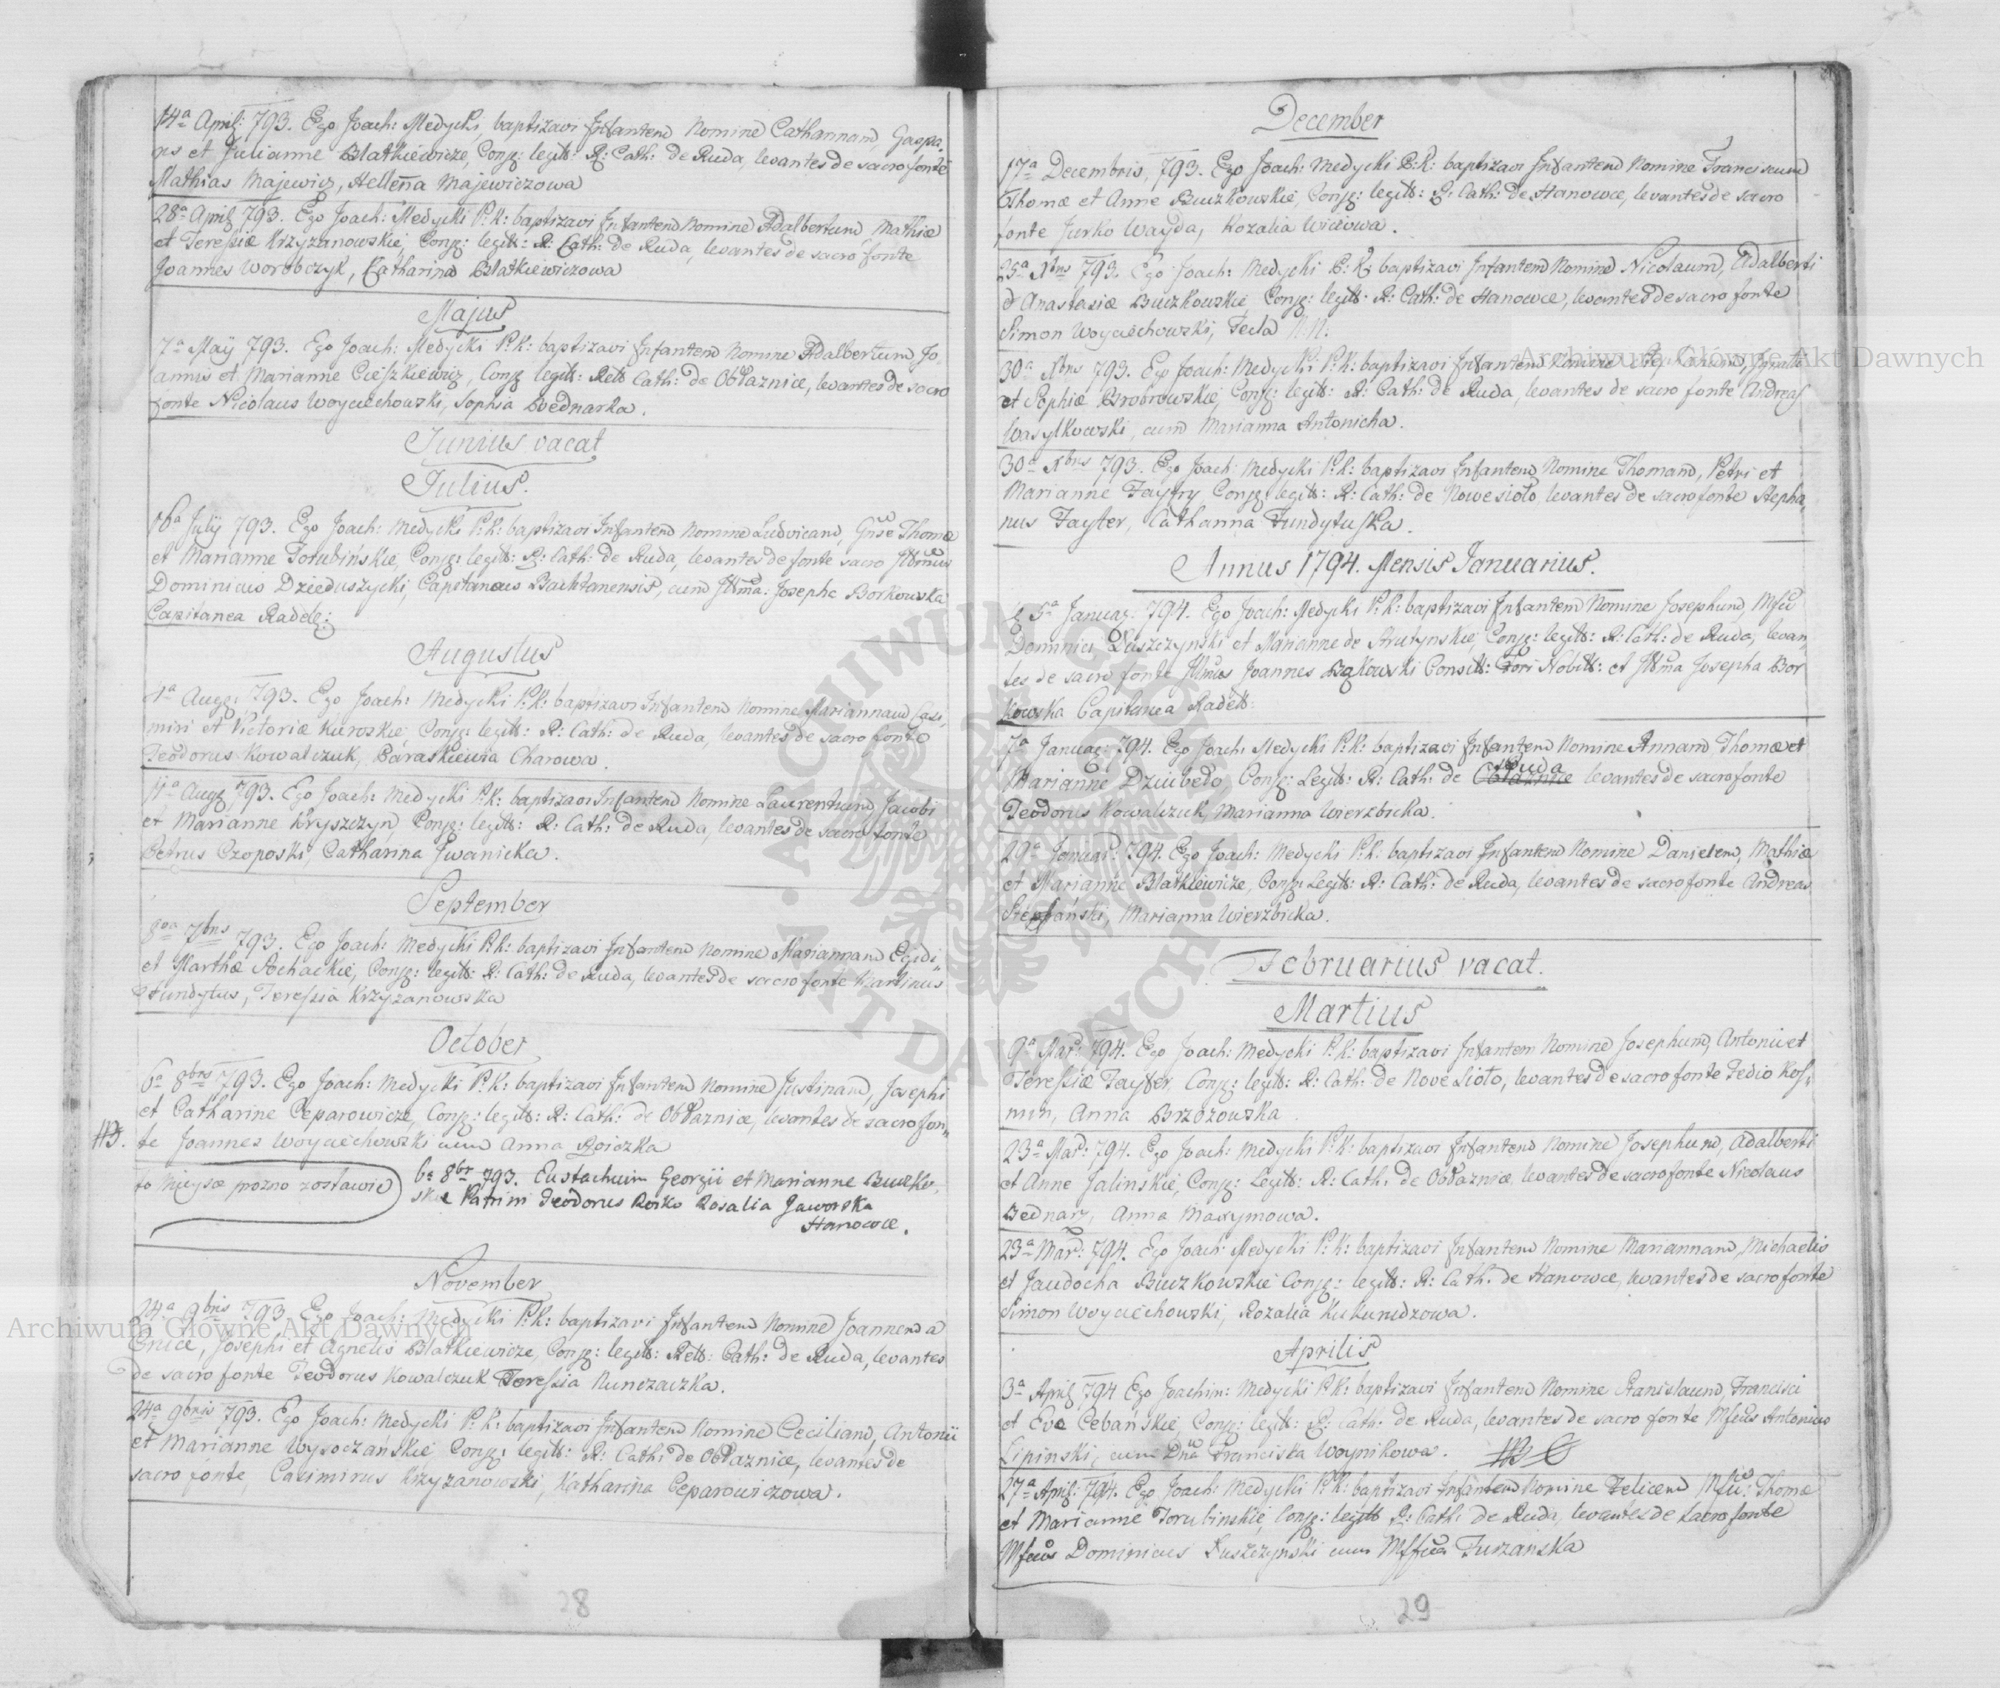 14a April: 793. Ego Joach: Medycki, baptizavi Infantem Nomine Catharinam, Gaspa-
ris et Julianne Blatkiewicze, Conjg: legitt: R: Cath: de Ruda, levantes de sacro fonte
Mathias Majewicz, Hellena Majewiczowa
28a April 793. Ego Joach: Medycki P:K: baptizavi Infantem Nomine Adalbertum Mathiæ
et Teressiæ Krzyzanowskie, Conjg: legitt: R: Cath: de Ruda, levantes de sacro fonte
Joannes Worobczyk, Catharina Blatkiewiczowa
Majus
7a Maÿ 793. Ego Joach: Medycki P:K: baptizavi Infantem Nomine Adalbertum Jo-
annis et Marianne Cieszkiewicz, Conjg legitt: Ritt Cath: de Obłaznice, levantes de sacro
fonte Nicolaus Woyciechowski, Sophia Bednarka.
Junius vacat
Julius.
16a Julÿ 793. Ego Joach: Medycki P:K: baptizavi Infantem Nomine Ludvicam, Thomæ
et Marianne Torubińskie, Conjg: legitt: R: Cath: de Ruda, levantes de fonte sacro Illmus
Dominicus Dzieduszycki, Capitaneus Bachtanensis, cum Illma: Josepha Borkowska
Capitanea Radeł:
Augustus
Aug: 793. Ego Joach: Medycki P:K: baptizavi Infantem Nomine Mariannam Casi-
miri et Victoriæ Kurowskie, Conjg: legitt: R: Cath: de Ruda, levantes de sacro fonte
Teodorus Kowalczuk, Paraskiewia Charowa.
11a Aug 793. Ego Joach: Medycki P:K: baptizavi Infantem Nomine Laurentium, Jacobi
et Marianne Kryszczyn, Conjg: legitt: R: Cath: de Ruda, levantes de sacro fonte
Petrus Czoposki, Catharina Iwanicka.
September
8va 7bris 793. Ego Joach: Medycki P:K: baptizavi Infantem Nomine Mariannam Egidi
et Marthæ Sochackie, Conjg: legitt: R: Cath: de Ruda, levantes de sacro fonte Martinus
Fundytus, Teressia Krzyzanowska
October
6a 8bris 793. Ego Joach: Medycki P:K: baptizavi Infantem Nomine Justinam, Josephi
et Catharine Ceparowicze, Conjg: legitt: R: Cath: de Obłaznice, levantes de sacro fon-
te Joannes Woyciechowski cum Anna
to mieysce prozno zostawie
6a 8br 793. Eustachium Georgii et Marianne Buczko-
skie Patrini Teodorus Roiko Rosalia Jaworska
Hanowce.
November
24a 9bris 793 Ego Joach: Medycki P:K: baptizavi Infantem Nomine Joannem a
Cruce, Josephi et Agnetis Blatkiewicze, Conjg: legitt: Ritt: Cath: de Ruda, levantes
de sacro fonte Teodorus Kowalczuk Teressia Kunczaczka.
24a 9bris 793. Ego Joach: Medycki P:K: baptizavi Infantem Nomine Ceciliam, Antonii
et Marianne Wysoczańskie Conjg: legitt: R: Cath: de Obłaznice, levantes de
sacro fonte, Casimirus Krzyzanowski, Katharina Ceparowiczowa.
28
December
17a Decembris, 793. Ego Joach: Medycki P:K: baptizavi Infantem Nomine Franciscum
Thomæ et Anne Buczkowskie, Conjg: legitt: R: Cath: de Hanowce, levantes de sacro
fonte Jurko Wayda, Rozalia Wiciowa.
25a Xbris 793. Ego Joach: Medycki P:K: baptizavi Infantem Nomine Nicolaum, Adalberti
et Anastasiæ Buczkowskie Conjg: legitt: R: Cath: de Hanowce, levantes de sacro fonte
Simon Woyciechowski, Tecla N.N.
30a Xbris 793. Ego Joach: Medycki P:K: baptizavi Infantem Nomine Ignatii
et Sophiæ Brobrowskie, Conjg: legitt: R: Cath: de Ruda, levantes de sacro fonte Andreas
Wasylkowski, cum Marianna Antonicha.
30a Xbris 793. Ego Joach: Medycki P:K: baptizavi Infantem Nomine Thomam, Petri et
Marianne Fayfry Conjg: legitt: R: Cath: de Nowesioło levantes de sacro fonte Stepha-
nus Fayfer, Catharina Fundytuska.
Annus 1794. Mensis Januarius.
5a Januar: 794. Ego Joach: Medycki P:K: baptizavi Infantem Nomine Josephum, Mfci
Dominici Duszczynski et Marianne de Strutynskie, Conjg: legitt: R: Cath: de Ruda, levan-
tes de sacro fonte Illmus Joannes Bąkowski Consitt: Fori Nobitt: et Illma Josepha Bor-
kowska Capitanea Radett:
7a Januar: 794. Ego Joach: Medycki P:K: baptizavi Infantem Nomine Annam Thomæ et
Marianne Dziubeło, Conjg: Legitt: R: Cath: de Obłaznice Ruda levantes de sacro fonte
Teodorus Kowalczuk, Marianna Wierzbicka.
29a Januar: 794. Ego Joach: Medycki P:K: baptizavi Infantem Nomine Danielem, Mathiæ
et Marianne Blatkiewicze, Conjg: Legitt: R: Cath: de Ruda, levantes de sacro fonte Andreas
Stefański, Marianna Wierzbicka.
Februarius vacat.
Martius
9a Mar: 794. Ego Joach: Medycki P:K: baptizavi Infantem Nomine Josephum, Antonii et
Teressiæ Fayfer, Conjg: legitt: R: Cath: de Nove Sioło, levantes de sacro fonte Fedio Kos-
min, Anna Brzozowska
23a Mar: 794. Ego Joach: Medycki P:K: baptizavi Infantem Nomine Josephum, Adalberti
et Anne Jalinskie, Conjg: Legitt: R: Cath: de Obłaznice, levantes de sacro fonte Nicolaus
Bednarz, Anna Maxymowa.
23a Mar: 794. Ego Joach: Medycki P:K: baptizavi Infantem Nomine Mariannam, Michaelis
et Jaudocha Buczkowskie Conjg: legitt: R: Cath: de Hanowce, levantes de sacro fonte
Simon Woyciechowski, Rozalia Kukurudzowa.
Aprilis
3a April 794 Ego Joachim: Medycki P:K: baptizavi Infantem Nomine Stanislaum, Francisci
et Eve Cebańskie, Conjg: legitt: R: Cath: de Ruda, levantes de sacro fonte Mfcus Antonius
Lipinski, cum Dna Franciska Woynikowa.
27a April: 794. Ego Joach: Medycki P:K: baptizavi Infantem Nomine Felicem Mfci: Thomæ
et Marianne Torubinskie, Conjg: legitt R: Cath: de Ruda, levantes de sacro fonte
Mfcus Dominicus Duszczynski cum Mffica Turzanska
29
Archiwum Główne Akt Dawnych
Archiwum Główne Akt Dawnych
ARCHIWUM GŁÓWNE AKT DAWNYCH